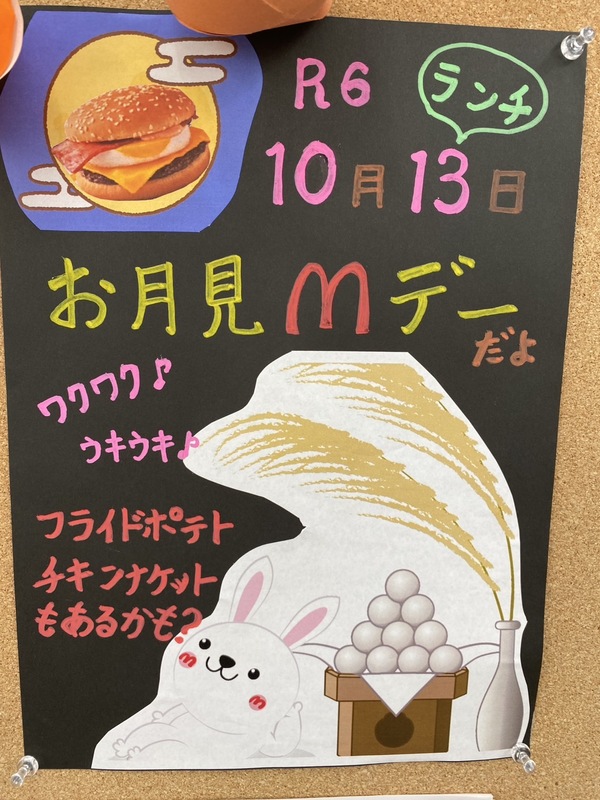 R6
ランチ
10月13日
お月見Mデー
だよ
ワクワク♪
ウキウキ♪
フライドポテト
チキンナゲット
もあるかも?
m
m